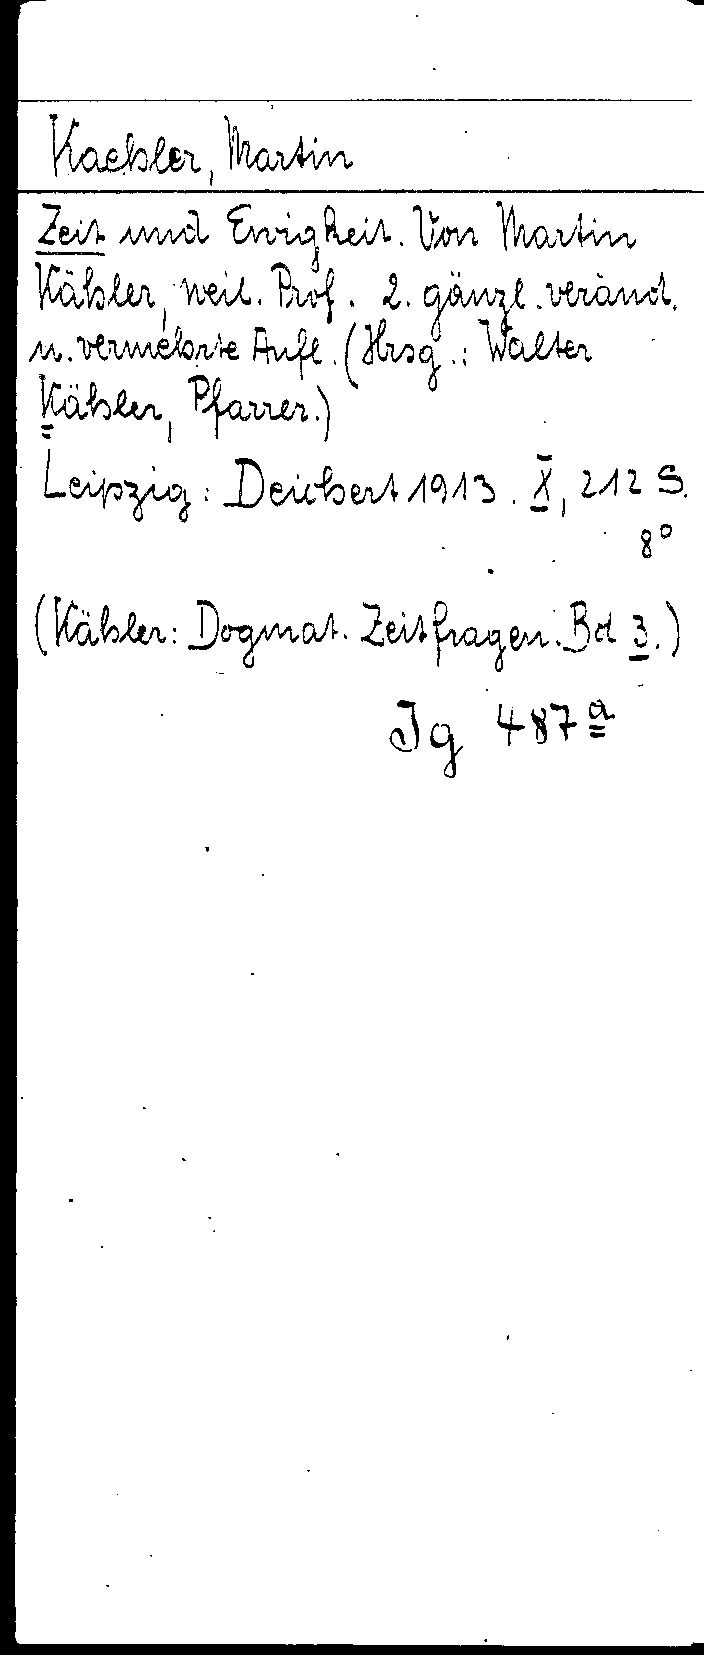 Kaehler, Martin
Zeit und Ewigkeit. Von Martin
Kähler, weil. Prof. 2. gänzl. veränd.
u. vermehrte Aufl. (Hrsg.: Walter
Kähler, Pfarrer.)
Leipzig: Deichert 1913. X, 212 S.
8°
(Kähler: Dogmat. Zeitfragen. Bd 3.)
Jg 487 a